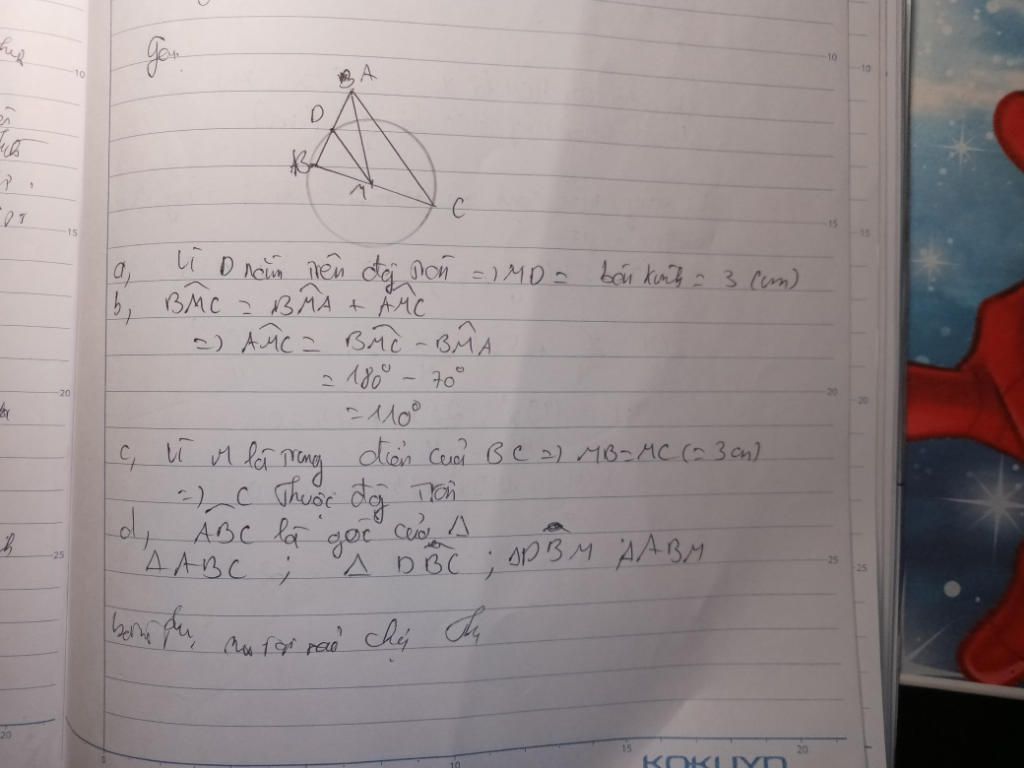 A
D
B
M
C
a, Vì D nằm trên đg tròn => MD = bán kính = 3 (cm)
b, BMC = BMA + AMC
=> AMC = BMC - BMA
= 180° - 70°
= 110°
c, Vì M là trung điểm của BC => MB = MC (= 3cm)
=> C thuộc đg tròn
d, ABC là góc của Δ
Δ ABC ; Δ DBC ; ΔDBM ; ΔABM
KOKUYO